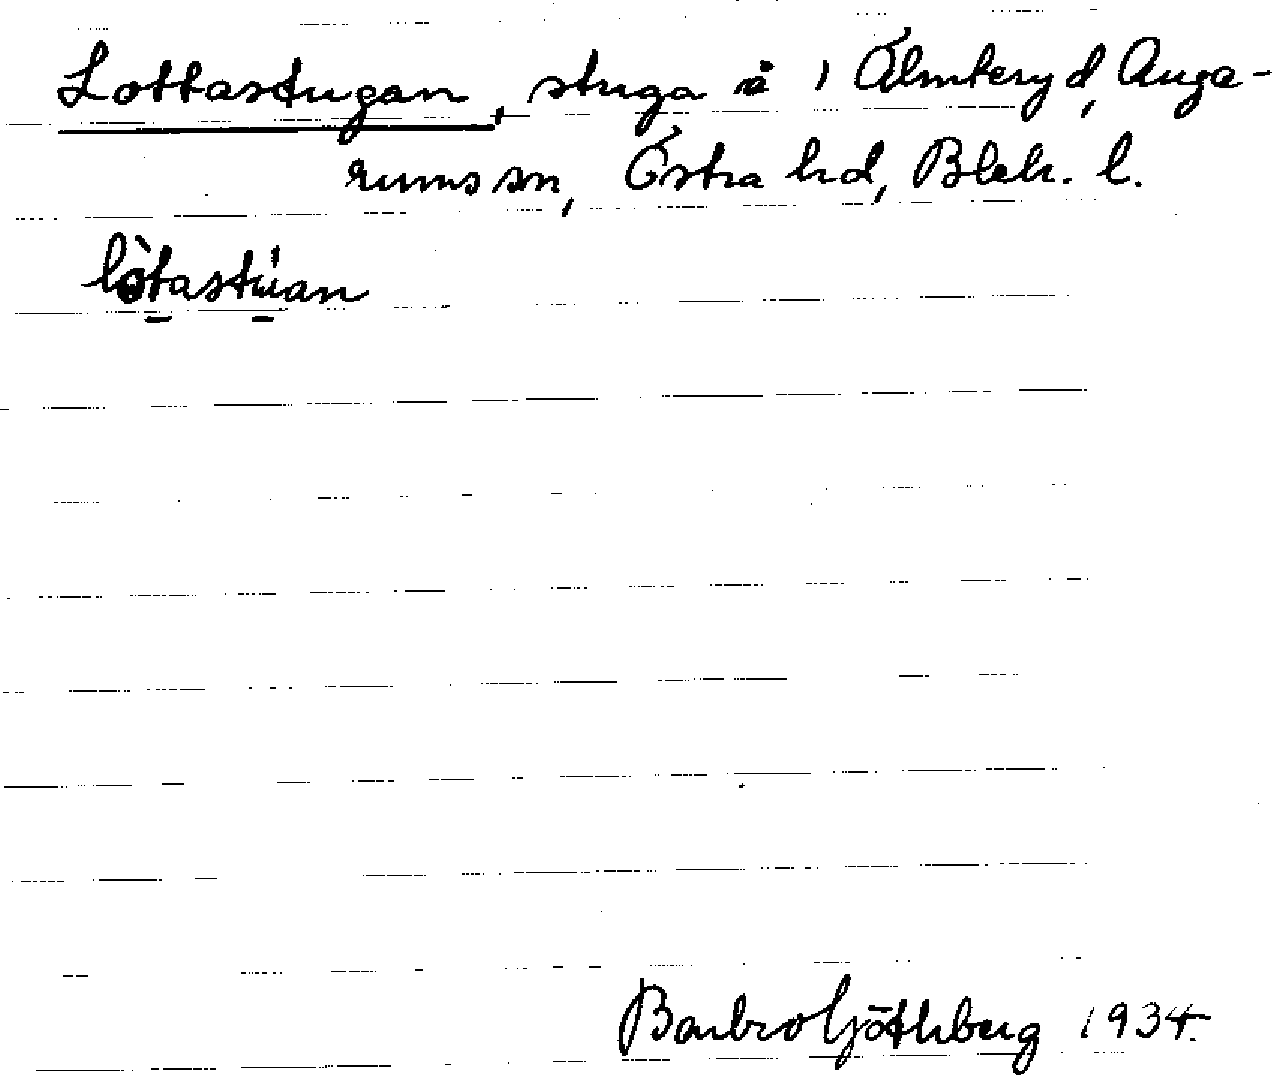 Lottastugan, stuga å 1 Älmteryd, Auga-
rums sn, Östra hd, Blek. l.
lòtastúan
Barbro Göthberg 1934.